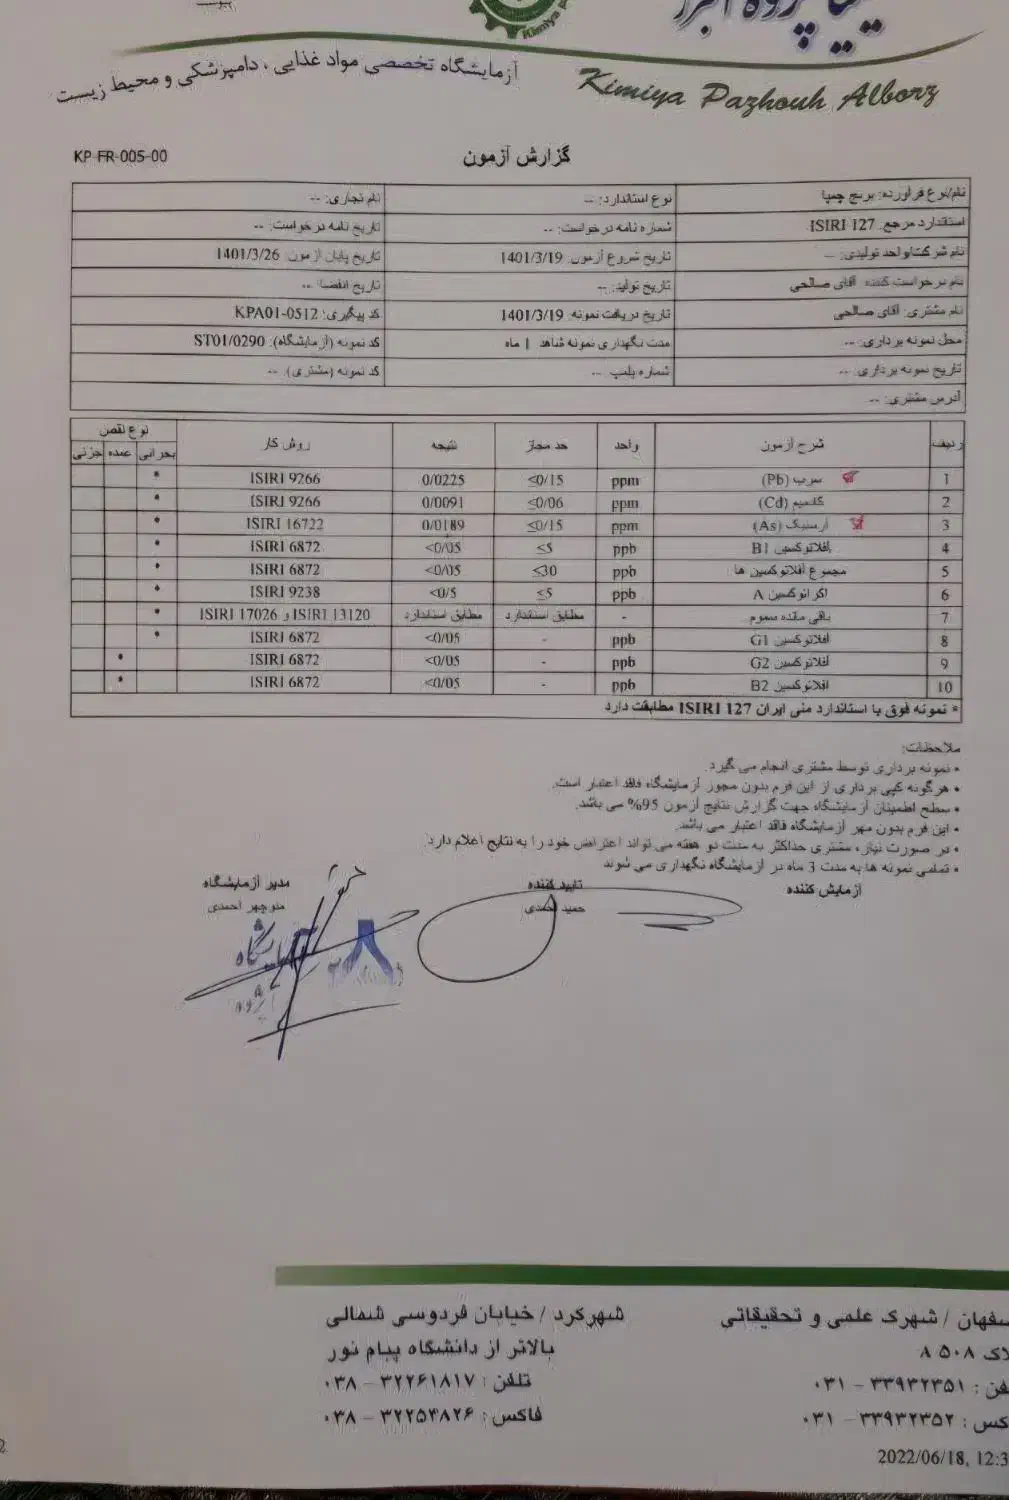 Kimiya Pazhouh Alborz
آزمایشگاه تخصصی مواد غذایی ، دامپزشکی و محیط زیست
گزارش آزمون
KP-FR-005-00
نام/نوع فرآورده: برنج چمپا نوع استاندارد: -- نام تجاری: --
استاندارد مرجع: ISIRI 127 شماره نامه درخواست: -- تاریخ نامه درخواست: --
نام شرکت/واحد تولیدی: -- تاریخ شروع آزمون: 1401/3/19 تاریخ پایان آزمون: 1401/3/26
نام درخواست کننده: آقای صالحی تاریخ تولید: -- تاریخ انقضا: --
نام مشتری: آقای صالحی تاریخ دریافت نمونه: 1401/3/19 کد پیگیری: KPA01-0512
محل نمونه برداری: -- مدت نگهداری نمونه شاهد: 1 ماه کد نمونه (آزمایشگاه): ST01/0290
تاریخ نمونه برداری: -- شماره پلمپ: -- کد نمونه (مشتری): --
آدرس مشتری: --
ردیف شرح آزمون واحد حد مجاز نتیجه روش کار نوع نقص
بحرانی عمده جزئی
1 سرب (Pb) ppm ≤0/15 0/0225 ISIRI 9266 *
2 کادمیم (Cd) ppm ≤0/06 0/0091 ISIRI 9266 *
3 آرسنیک (As) ppm ≤0/15 0/0189 ISIRI 16722 *
4 آفلاتوکسین B1 ppb ≤5 <0/05 ISIRI 6872 *
5 مجموع آفلاتوکسین ها ppb ≤30 <0/05 ISIRI 6872 *
6 اکراتوکسین A ppb ≤5 <0/5 ISIRI 9238 *
7 باقی مانده سموم - مطابق استاندارد مطابق استاندارد ISIRI 13120 و ISIRI 17026 *
8 آفلاتوکسین G1 ppb - <0/05 ISIRI 6872 *
9 آفلاتوکسین G2 ppb - <0/05 ISIRI 6872 *
10 آفلاتوکسین B2 ppb - <0/05 ISIRI 6872 *
* نمونه فوق با استاندارد ملی ایران ISIRI 127 مطابقت دارد
ملاحظات:
• نمونه برداری توسط مشتری انجام می گیرد.
• هرگونه کپی برداری از این فرم بدون مجوز آزمایشگاه فاقد اعتبار است.
• سطح اطمینان آزمایشگاه جهت گزارش نتایج آزمون 95% می باشد.
• این فرم بدون مهر آزمایشگاه فاقد اعتبار می باشد.
• در صورت نیاز، مشتری حداکثر به مدت دو هفته می تواند اعتراض خود را به نتایج اعلام دارد.
• تمامی نمونه ها به مدت 3 ماه در آزمایشگاه نگهداری می شوند
آزمایش کننده تایید کننده مدیر آزمایشگاه
حمید احمدی منوچهر احمدی
سفهان / شهرک علمی و تحقیقاتی
لاک ۵۰۸ ۸
فن : ۳۳۹۳۲۳۵۱ – ۰۳۱
کس : ۳۳۹۳۲۳۵۲ – ۰۳۱
شهرکرد / خیابان فردوسی شمالی
بالاتر از دانشگاه پیام نور
تلفن : ۳۲۲۶۱۸۱۷ – ۰۳۸
فاکس : ۳۲۲۵۳۸۲۶ – ۰۳۸
2022/06/18, 12:3